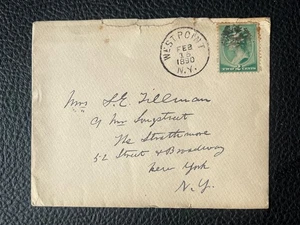 WEST POINT
FEB
15
1890
N.Y.
Mrs S. E. Tillman
c/ Mrs Longstreet
The Strathmore
52 Street & Broadway
New York
N.Y.